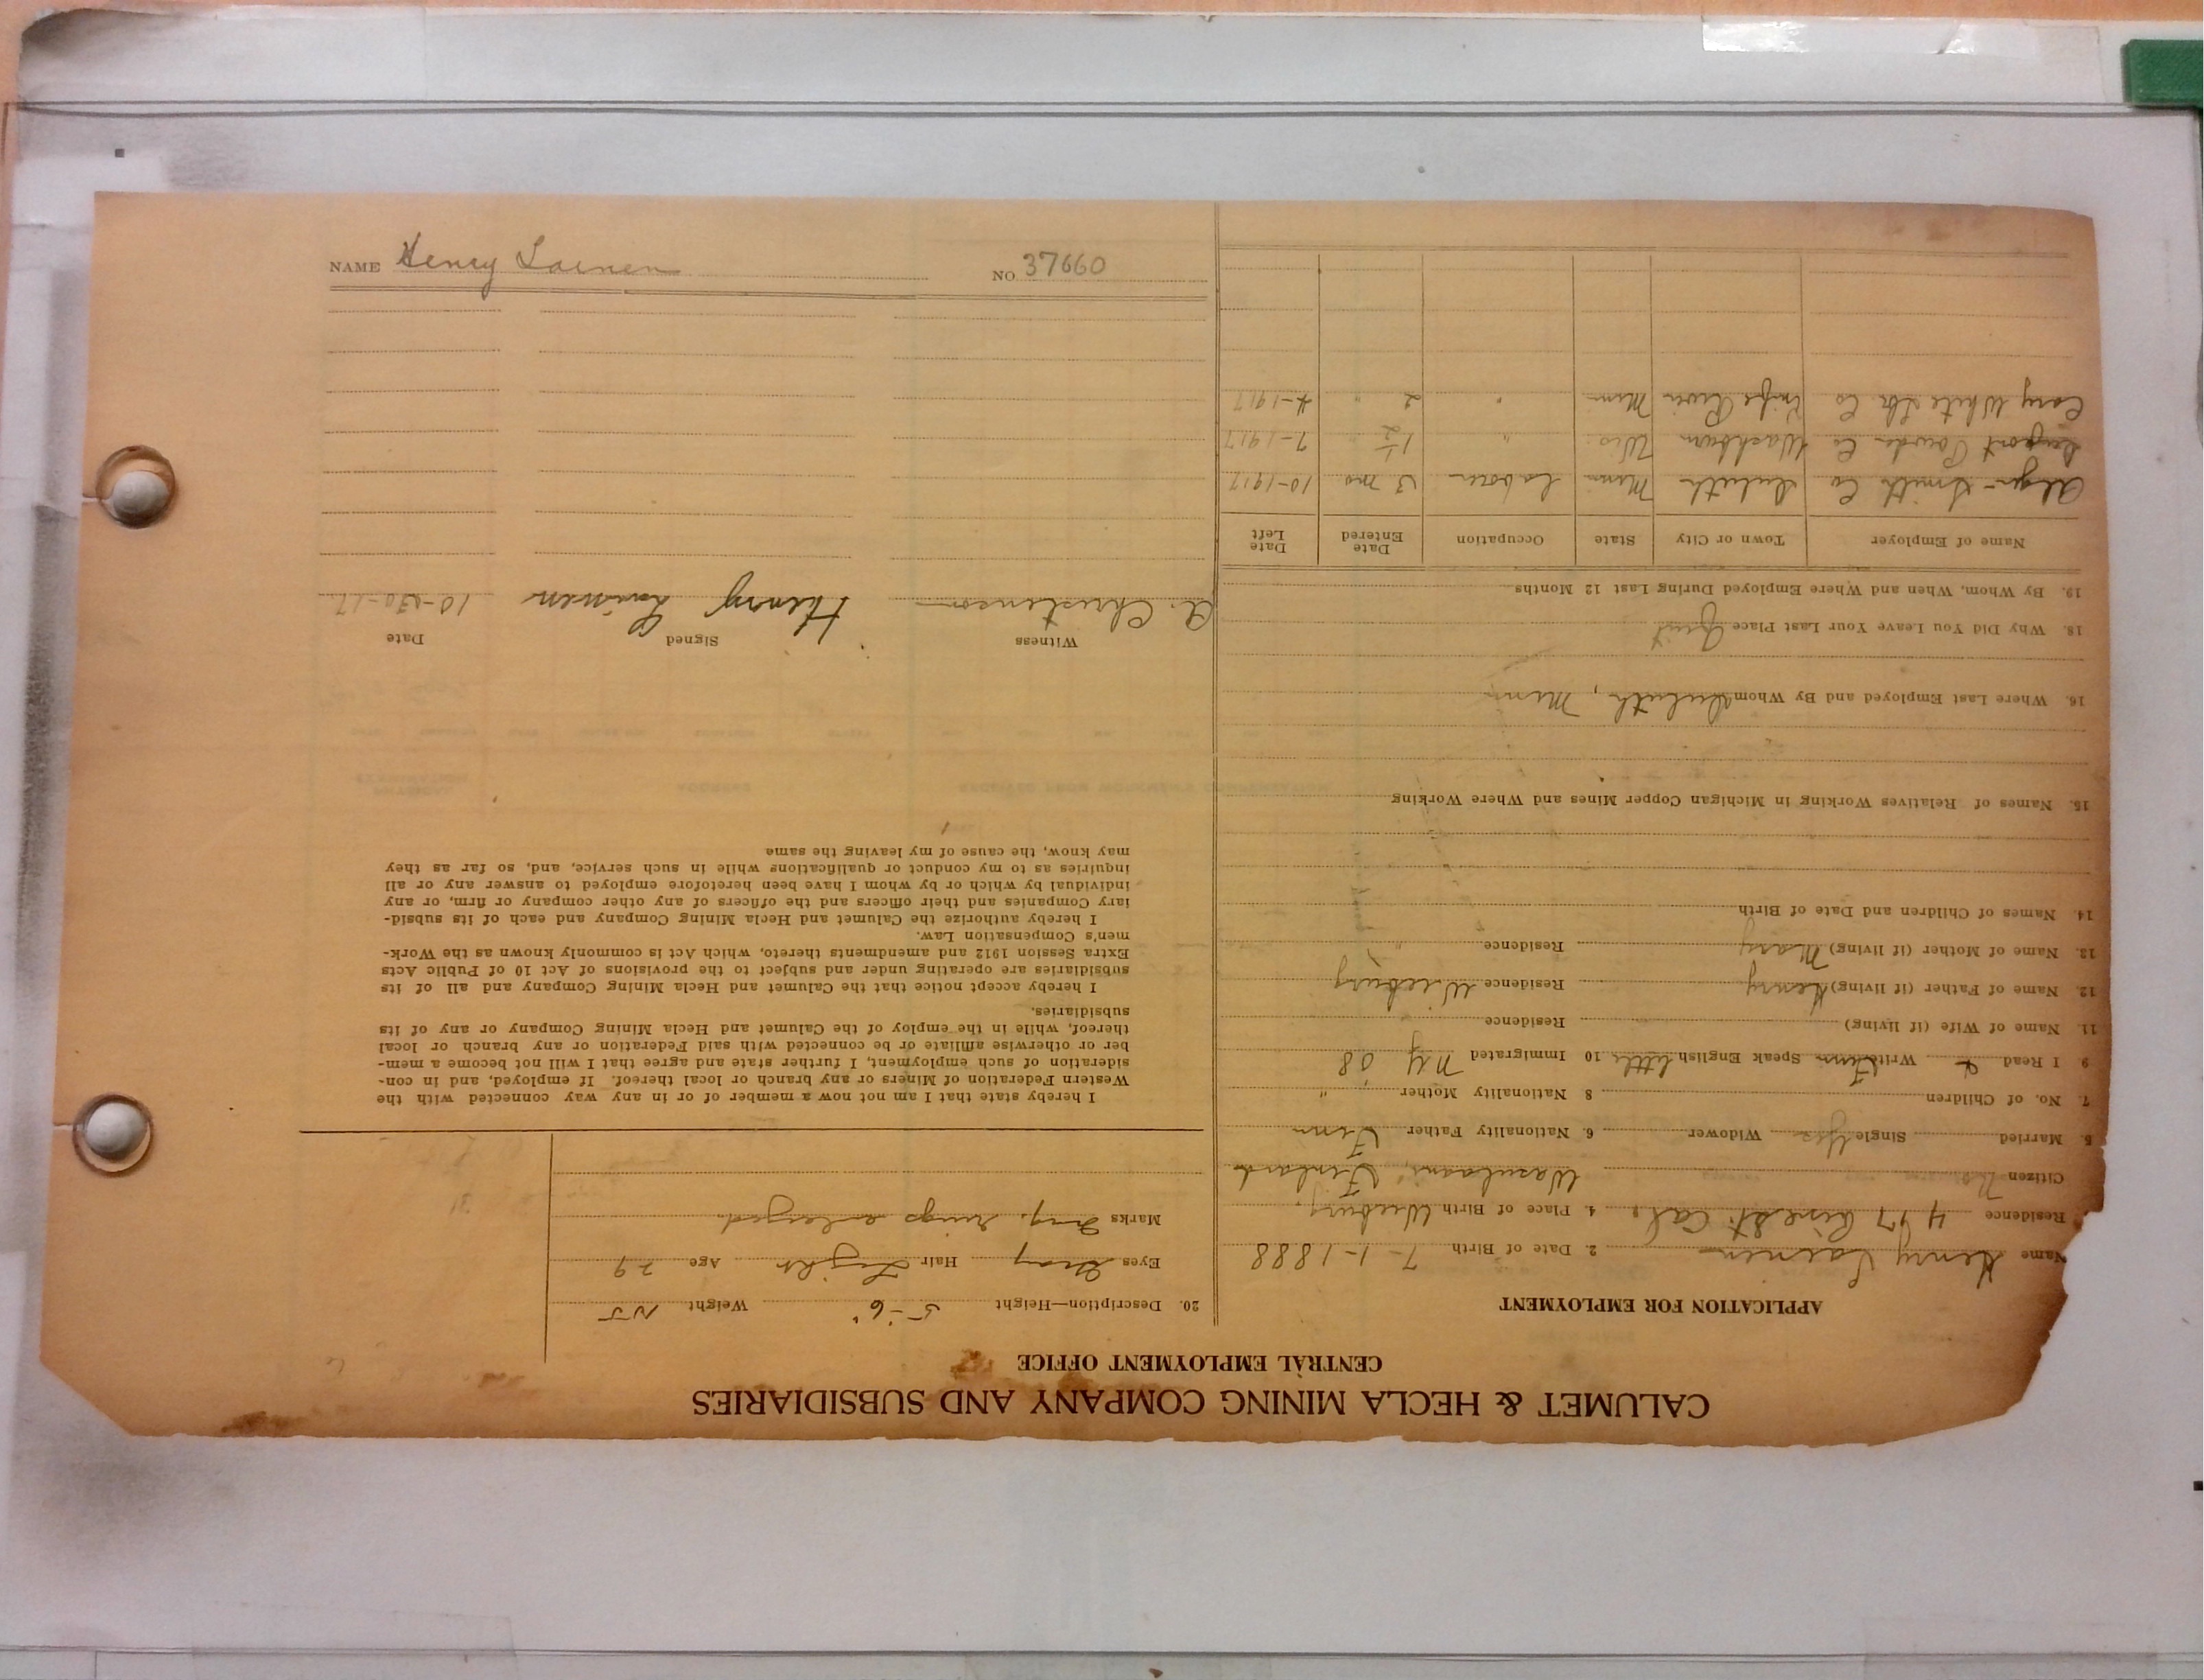 CALUMET & HECLA MINING COMPANY AND SUBSIDIARIES
CENTRAL EMPLOYMENT OFFICE
APPLICATION FOR EMPLOYMENT
Name Henry Lainen 2. Date of Birth 7-1-1888
Residence 447 Pine St. Cal. 4. Place of Birth Wieburg,
Citizen No Finland
5. Married Single Yes Widower 6. Nationality Father Finn
7. No. of Children 8 Nationality Mother "
9 I Read & Write Finn Speak English little 10 Immigrated NY 08
11. Name of Wife (if living) Residence
12. Name of Father (if living) Henry Residence Wieburg
13. Name of Mother (if living) Mary Residence "
14. Names of Children and Date of Birth
15. Names of Relatives Working in Michigan Copper Mines and Where Working
16. Where Last Employed and By Whom Duluth, Minn
18. Why Did You Leave Your Last Place Quit
19. By Whom, When and Where Employed During Last 12 Months
Name of Employer Town or City State Occupation Date Entered Date Left
Alger-Smith Co Duluth Minn Laborer 3 mo 10-1917
Dupont Powder Co Washburn Wis. " 1½ " 7-1917
Cory White Lbr Co Knife River Minn " 2 " 4-1917
20. Description—Height 5-6" Weight
Eyes Gray Hair Light Age 29
Marks rings enlarged.
I hereby state that I am not now a member of or in any way connected with the
Western Federation of Miners or any branch or local thereof. If employed, and in con-
sideration of such employment, I further state and agree that I will not become a mem-
ber or otherwise affiliate or be connected with said Federation or any branch or local
thereof, while in the employ of the Calumet and Hecla Mining Company or any of its
subsidiaries.
I hereby accept notice that the Calumet and Hecla Mining Company and all of its
subsidiaries are operating under and subject to the provisions of Act 10 of Public Acts
Extra Session 1912 and amendments thereto, which Act is commonly known as the Work-
men's Compensation Law.
I hereby authorize the Calumet and Hecla Mining Company and each of its subsid-
iary Companies and their officers and the officers of any other company or firm, or any
individual by which or by whom I have been heretofore employed to answer any or all
inquiries as to my conduct or qualifications while in such service, and, so far as they
may know, the cause of my leaving the same
Witness Signed Date
A. Christenson Henry Lainen 10-30-17
NAME Henry Lainen NO 37660